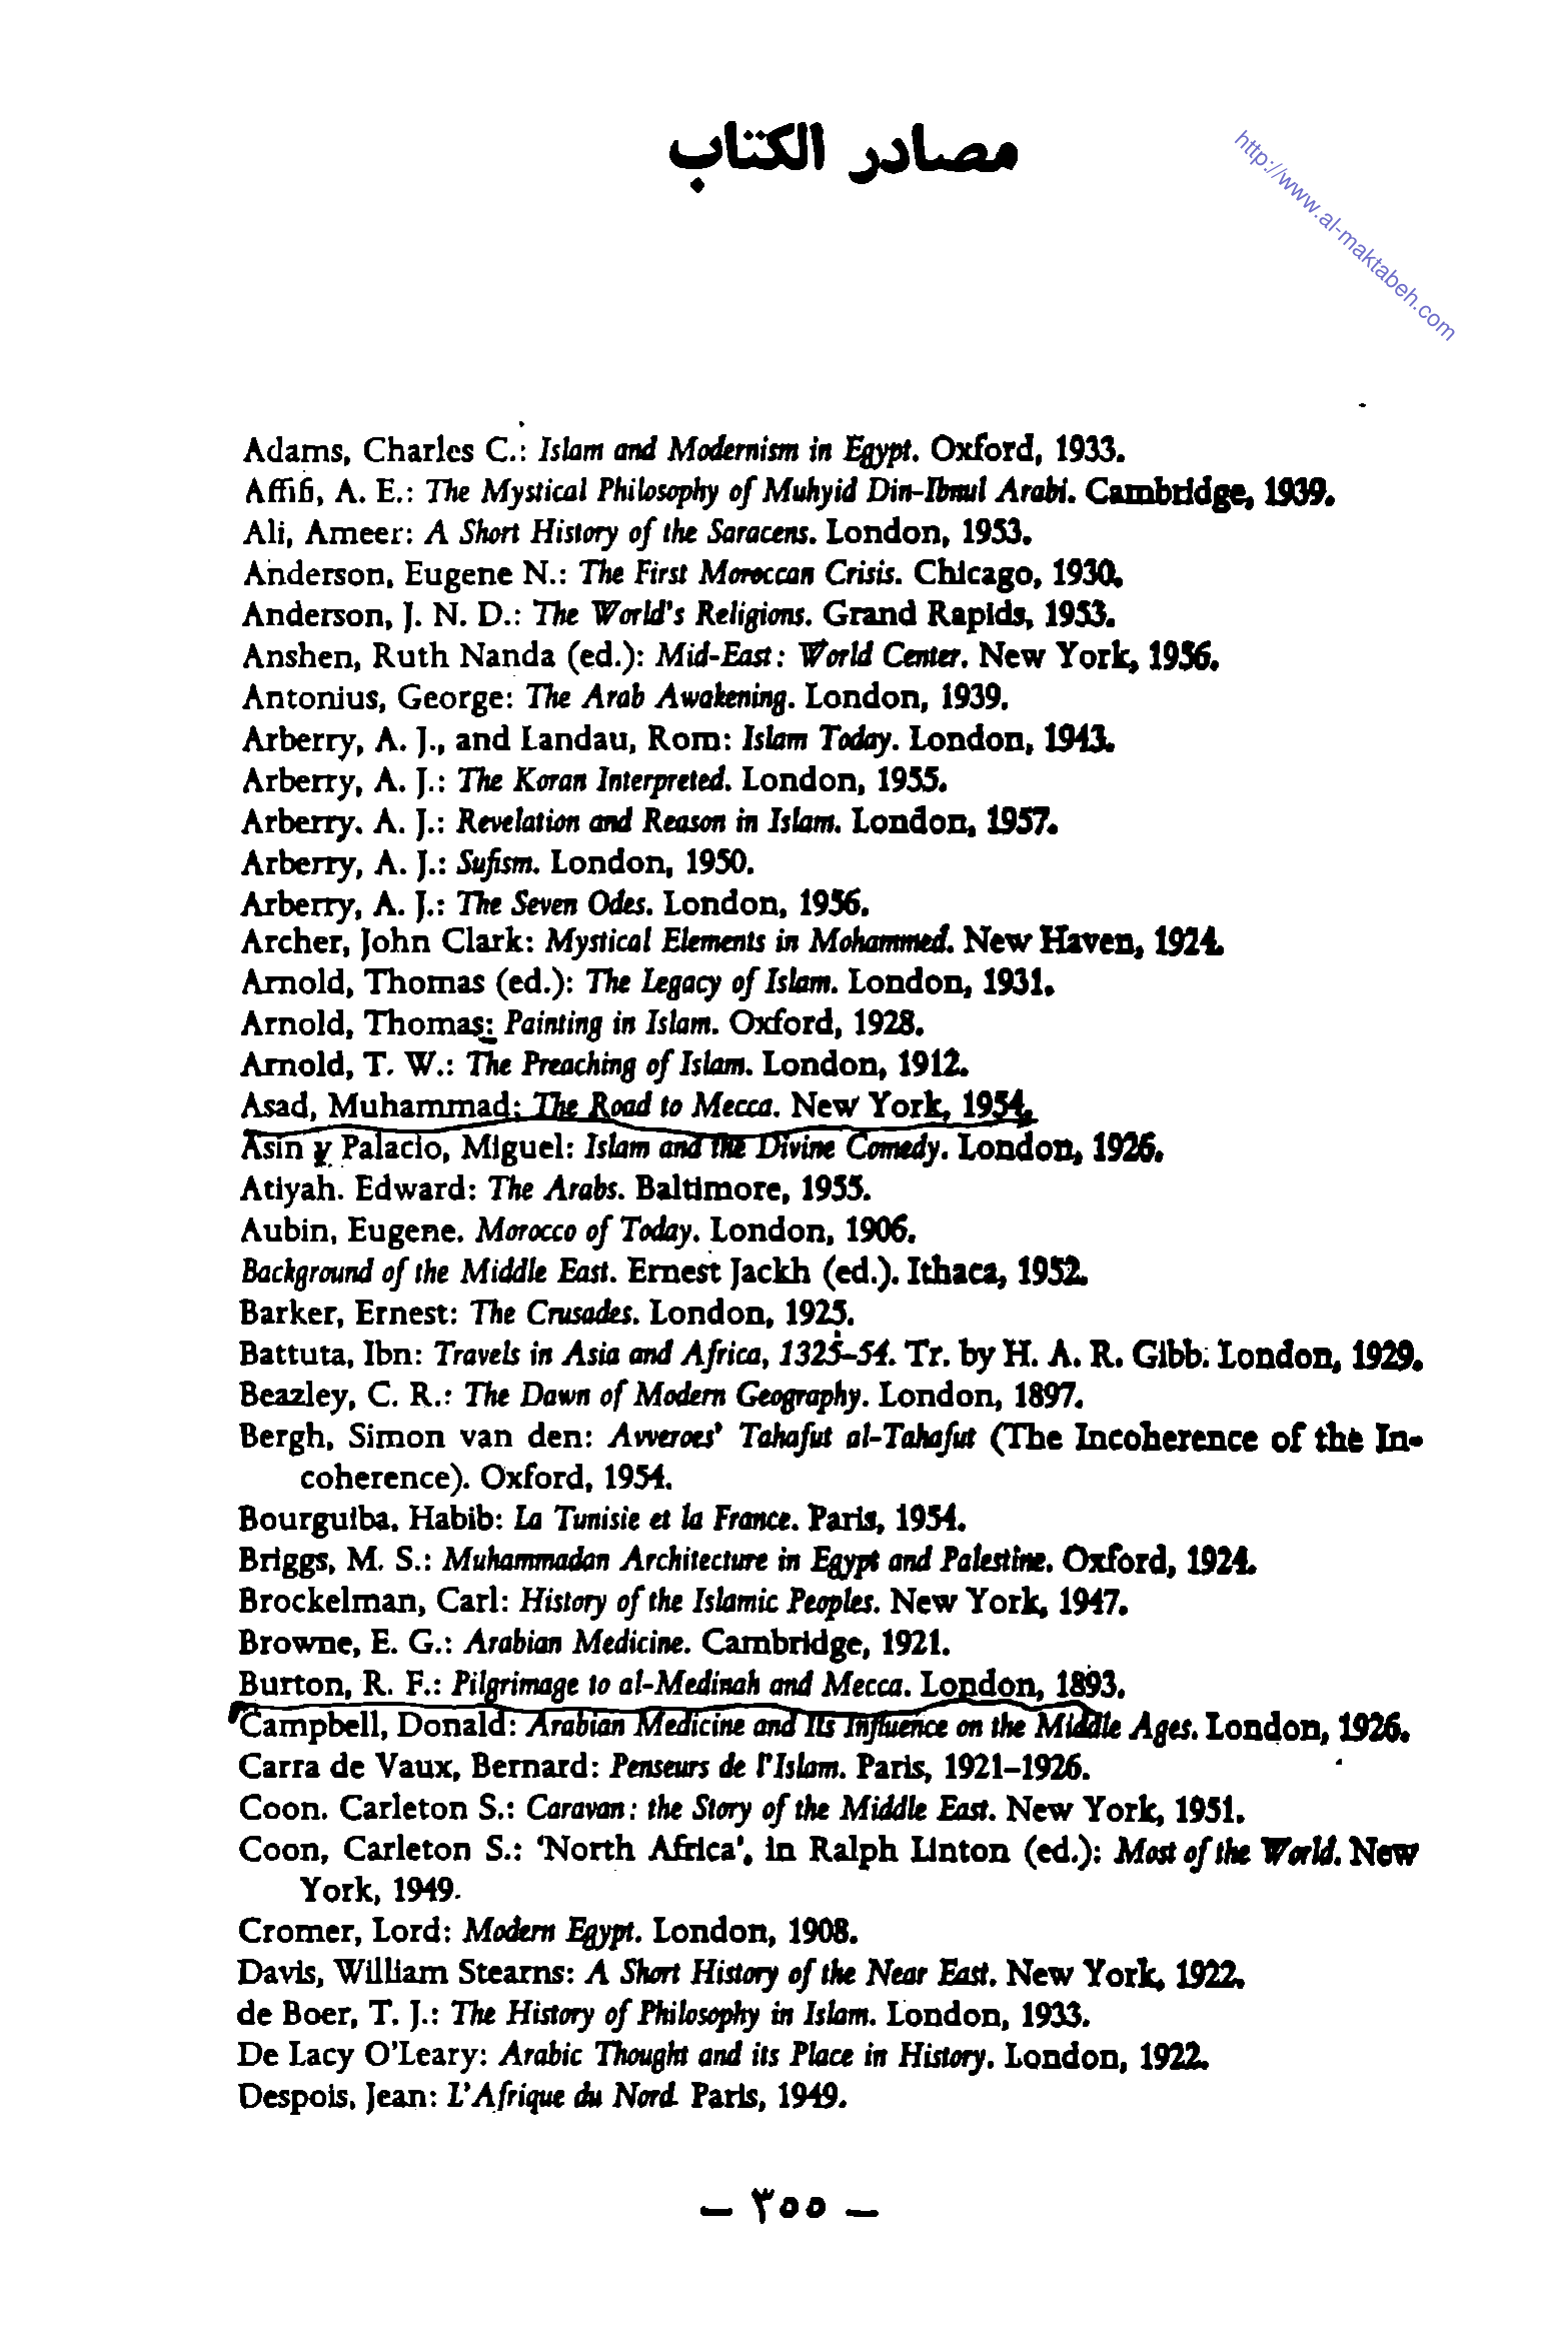 مصادر الكتاب
http://www.al-maktabeh.com
Adams, Charles C.: Islam and Modernism in Egypt. Oxford, 1933.
Affifi, A. E.: The Mystical Philosophy of Muhyid Din-Ibnul Arabi. Cambridge, 1939.
Ali, Ameer: A Short History of the Saracens. London, 1953.
Anderson, Eugene N.: The First Moroccan Crisis. Chicago, 1930.
Anderson, J. N. D.: The World's Religions. Grand Rapids, 1953.
Anshen, Ruth Nanda (ed.): Mid-East: World Center. New York, 1956.
Antonius, George: The Arab Awakening. London, 1939.
Arberry, A. J., and Landau, Rom: Islam Today. London, 1943.
Arberry, A. J.: The Koran Interpreted. London, 1955.
Arberry. A. J.: Revelation and Reason in Islam. London, 1957.
Arberry, A. J.: Sufism. London, 1950.
Arberry, A. J.: The Seven Odes. London, 1956.
Archer, John Clark: Mystical Elements in Mohammed. New Haven, 1924.
Arnold, Thomas (ed.): The Legacy of Islam. London, 1931.
Arnold, Thomas: Painting in Islam. Oxford, 1928.
Arnold, T. W.: The Preaching of Islam. London, 1912.
Asad, Muhammad: The Road to Mecca. New York, 1954.
Asin y Palacio, Miguel: Islam and the Divine Comedy. London, 1926.
Atiyah. Edward: The Arabs. Baltimore, 1955.
Aubin, Eugene. Morocco of Today. London, 1906.
Background of the Middle East. Ernest Jackh (ed.). Ithaca, 1952.
Barker, Ernest: The Crusades. London, 1925.
Battuta, Ibn: Travels in Asia and Africa, 1325–54. Tr. by H. A. R. Gibb. London, 1929.
Beazley, C. R.: The Dawn of Modern Geography. London, 1897.
Bergh, Simon van den: Avveroes' Tahafut al-Tahafut (The Incoherence of the In-
coherence). Oxford, 1954.
Bourguiba, Habib: La Tunisie et la France. Paris, 1954.
Briggs, M. S.: Muhammadan Architecture in Egypt and Palestine. Oxford, 1924.
Brockelman, Carl: History of the Islamic Peoples. New York, 1947.
Browne, E. G.: Arabian Medicine. Cambridge, 1921.
Burton, R. F.: Pilgrimage to al-Medinah and Mecca. London, 1893.
Campbell, Donald: Arabian Medicine and Its Influence on the Middle Ages. London, 1926.
Carra de Vaux, Bernard: Penseurs de l'Islam. Paris, 1921–1926.
Coon. Carleton S.: Caravan: the Story of the Middle East. New York, 1951.
Coon, Carleton S.: ‘North Africa’, in Ralph Linton (ed.): Most of the World. New
York, 1949.
Cromer, Lord: Modern Egypt. London, 1908.
Davis, William Stearns: A Short History of the Near East. New York, 1922.
de Boer, T. J.: The History of Philosophy in Islam. London, 1933.
De Lacy O'Leary: Arabic Thought and its Place in History. London, 1922.
Despois, Jean: L'Afrique du Nord. Paris, 1949.
– ٣٥٥ –